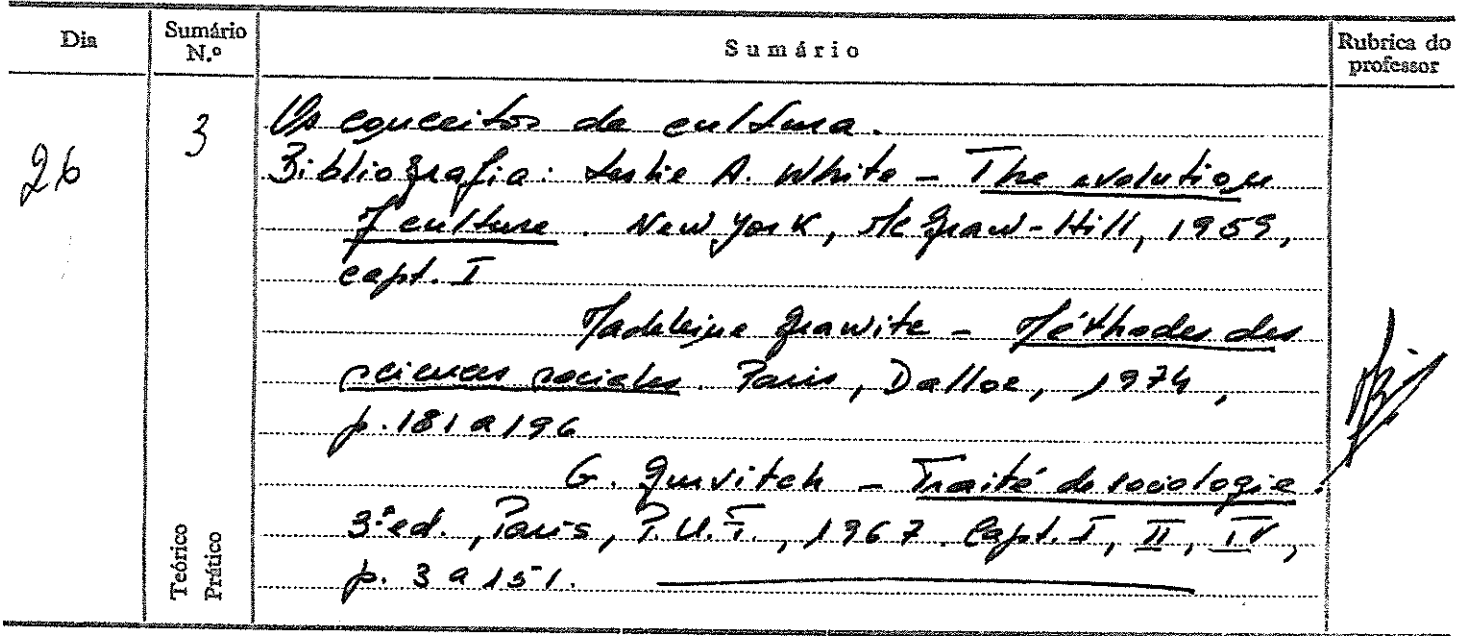 Dia Sumário N.º Sumário Rubrica do professor
26 3 Os conceitos de cultura.
Bibliografia: Leslie A. White - The evolution
of culture. New York, Mc Graw-Hill, 1959,
capt. I
Madeleine Grawitz - Méthodes des
sciences sociales. Paris, Dalloz, 1974,
p. 181 a 196
G. Gurvitch - Traité de sociologie.
3ª ed., Paris, P.U.F., 1967. Capt. I, II, IV,
p. 3 a 151.
Teórico
Prático